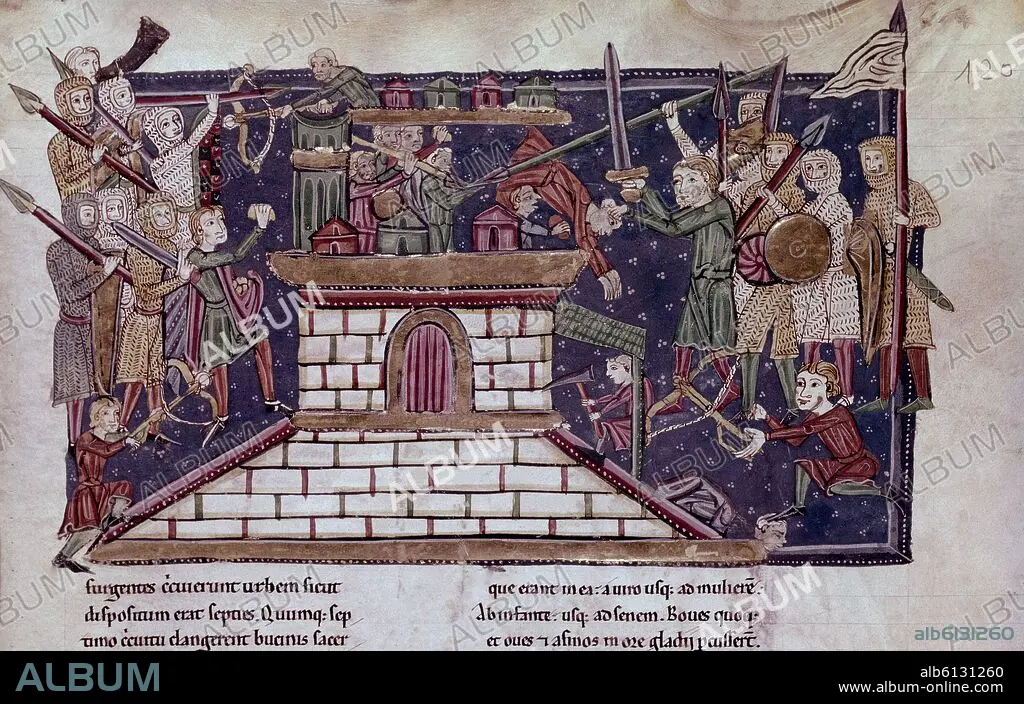 surgentes c̄cuierunt urbem sicut
dispositum erat septies. Quumq; sep
timo c̄cuitu clangerent bucinis sacer
que erant in ea: a uiro usq; ad mulierē.
Ab infante: usq; ad senem. Boues quoq;
et oues ⁊ asinos in ore gladij ꝑcusser̄t.
alb6131260
ALBUM
alb6131260
www.album-online.com